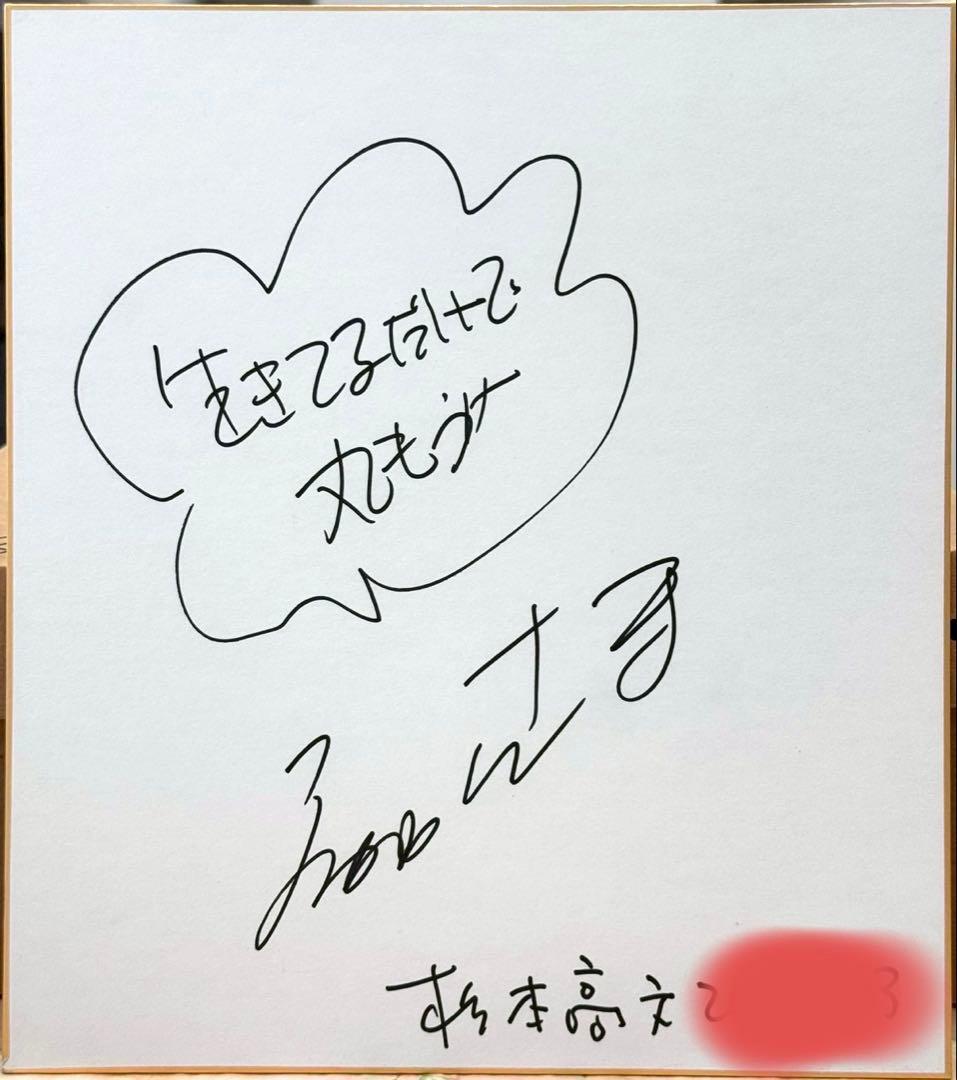 生きてるだけで
丸もうけ
杉本高文